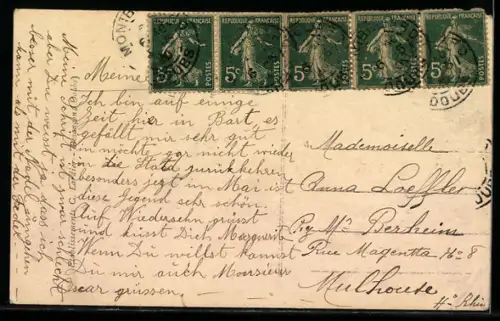 REPUBLIQUE FRANÇAISE
5c POSTES
REPUBLIQUE FRANÇAISE
5c POSTES
REPUBLIQUE FRANÇAISE
5c POSTES
REPUBLIQUE FRANÇAISE
5c POSTES
REPUBLIQUE FRANÇAISE
5c POSTES
DOUBS
Meine
Ich bin auf einige
Zeit hier in Bart, es
gefällt mir sehr gut
möchte gar nicht wieder
in die Stadt zurükkehren
besonders jezt im Mai ist
diese Gegend sehr schön.
Auf Wiedersehn grüsst
und küsst Dich Marguerite
Wenn Du willst kannst
Du mir auch Monsieur
Oscar grüssen.
Meine Schrift ist zwar schlecht
aber Du weisst ja dass ich
besser mit der Nadel umgehen
kann als mit der Feder
Mademoiselle
Anna Loeffler
Berheim
Rue Magenta No 8
Mulhouse
Hte Rhin